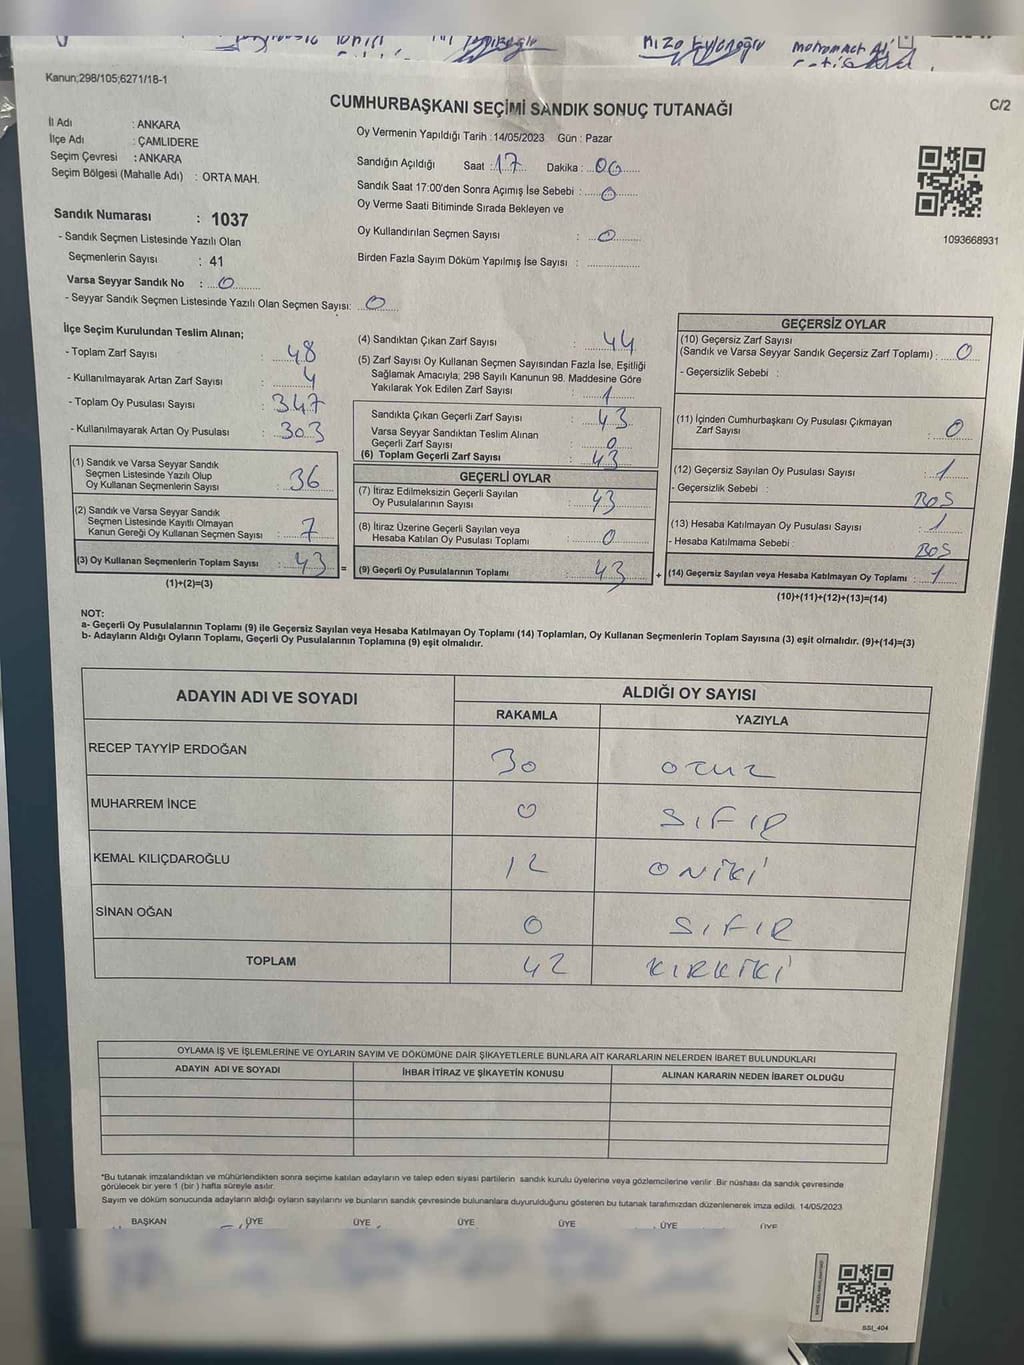 Kanun;298/105;6271/18-1
CUMHURBAŞKANI SEÇİMİ SANDIK SONUÇ TUTANAĞI
C/2
İl Adı : ANKARA
İlçe Adı : ÇAMLIDERE
Seçim Çevresi : ANKARA
Seçim Bölgesi (Mahalle Adı) : ORTA MAH.
Oy Vermenin Yapıldığı Tarih : 14/05/2023 Gün : Pazar
Sandığın Açıldığı Saat : 17 Dakika : 00
Sandık Saat 17:00'den Sonra Açımış İse Sebebi : 0
Oy Verme Saati Bitiminde Sırada Bekleyen ve
Oy Kullandırılan Seçmen Sayısı : 0
Birden Fazla Sayım Döküm Yapılmış İse Sayısı :
1093668931
Sandık Numarası : 1037
- Sandık Seçmen Listesinde Yazılı Olan
Seçmenlerin Sayısı : 41
Varsa Seyyar Sandık No : 0
- Seyyar Sandık Seçmen Listesinde Yazılı Olan Seçmen Sayısı: 0
İlçe Seçim Kurulundan Teslim Alınan;
- Toplam Zarf Sayısı : 48
- Kullanılmayarak Artan Zarf Sayısı : 4
- Toplam Oy Pusulası Sayısı : 347
- Kullanılmayarak Artan Oy Pusulası : 303
(1) Sandık ve Varsa Seyyar Sandık
Seçmen Listesinde Yazılı Olup
Oy Kullanan Seçmenlerin Sayısı : 36
(2) Sandık ve Varsa Seyyar Sandık
Seçmen Listesinde Kayıtlı Olmayan
Kanun Gereği Oy Kullanan Seçmen Sayısı : 7
(3) Oy Kullanan Seçmenlerin Toplam Sayısı : 43 =
(1)+(2)=(3)
(4) Sandıktan Çıkan Zarf Sayısı : 44
(5) Zarf Sayısı Oy Kullanan Seçmen Sayısından Fazla İse, Eşitliği
Sağlamak Amacıyla; 298 Sayılı Kanunun 98. Maddesine Göre
Yakılarak Yok Edilen Zarf Sayısı : 1
Sandıkta Çıkan Geçerli Zarf Sayısı : 43
Varsa Seyyar Sandıktan Teslim Alınan
Geçerli Zarf Sayısı : 0
(6) Toplam Geçerli Zarf Sayısı : 43
GEÇERLİ OYLAR
(7) İtiraz Edilmeksizin Geçerli Sayılan
Oy Pusulalarının Sayısı : 43
(8) İtiraz Üzerine Geçerli Sayılan veya
Hesaba Katılan Oy Pusulası Toplamı : 0
(9) Geçerli Oy Pusulalarının Toplamı : 43 +
GEÇERSİZ OYLAR
(10) Geçersiz Zarf Sayısı
(Sandık ve Varsa Seyyar Sandık Geçersiz Zarf Toplamı) : 0
- Geçersizlik Sebebi :
(11) İçinden Cumhurbaşkanı Oy Pusulası Çıkmayan
Zarf Sayısı : 0
(12) Geçersiz Sayılan Oy Pusulası Sayısı : 1
- Geçersizlik Sebebi : BOS
(13) Hesaba Katılmayan Oy Pusulası Sayısı : 1
- Hesaba Katılmama Sebebi : BOS
(14) Geçersiz Sayılan veya Hesaba Katılmayan Oy Toplamı : 1
(10)+(11)+(12)+(13)=(14)
NOT:
a- Geçerli Oy Pusulalarının Toplamı (9) ile Geçersiz Sayılan veya Hesaba Katılmayan Oy Toplamı (14) Toplamları, Oy Kullanan Seçmenlerin Toplam Sayısına (3) eşit olmalıdır. (9)+(14)=(3)
b- Adayların Aldığı Oyların Toplamı, Geçerli Oy Pusulalarının Toplamına (9) eşit olmalıdır.
ADAYIN ADI VE SOYADI
ALDIĞI OY SAYISI
RAKAMLA YAZIYLA
RECEP TAYYİP ERDOĞAN 30 OTUZ
MUHARREM İNCE 0 SIFIR
KEMAL KILIÇDAROĞLU 12 ONİKİ
SİNAN OĞAN 0 SIFIR
TOPLAM 42 KIRKİKİ
OYLAMA İŞ VE İŞLEMLERİNE VE OYLARIN SAYIM VE DÖKÜMÜNE DAİR ŞİKAYETLERLE BUNLARA AİT KARARLARIN NELERDEN İBARET BULUNDUKLARI
ADAYIN ADI VE SOYADI İHBAR İTİRAZ VE ŞİKAYETİN KONUSU ALINAN KARARIN NEDEN İBARET OLDUĞU
*Bu tutanak imzalandıktan ve mühürlendikten sonra seçime katılan adayların ve talep eden siyasi partilerin sandık kurulu üyelerine veya gözlemcilerine verilir. Bir nüshası da sandık çevresinde
görülecek bir yere 1 (bir ) hafta süreyle asılır.
Sayım ve döküm sonucunda adayların aldığı oyların sayılarını ve bunların sandık çevresinde bulunanlara duyurulduğunu gösteren bu tutanak tarafımızdan düzenlenerek imza edildi. 14/05/2023
BAŞKAN ÜYE ÜYE ÜYE ÜYE ÜYE ÜYE
SSI_404